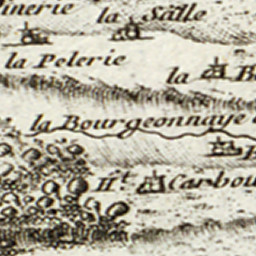 la Salle
la Pelerie
la
la Bourgeonnaye
H.t Carbou